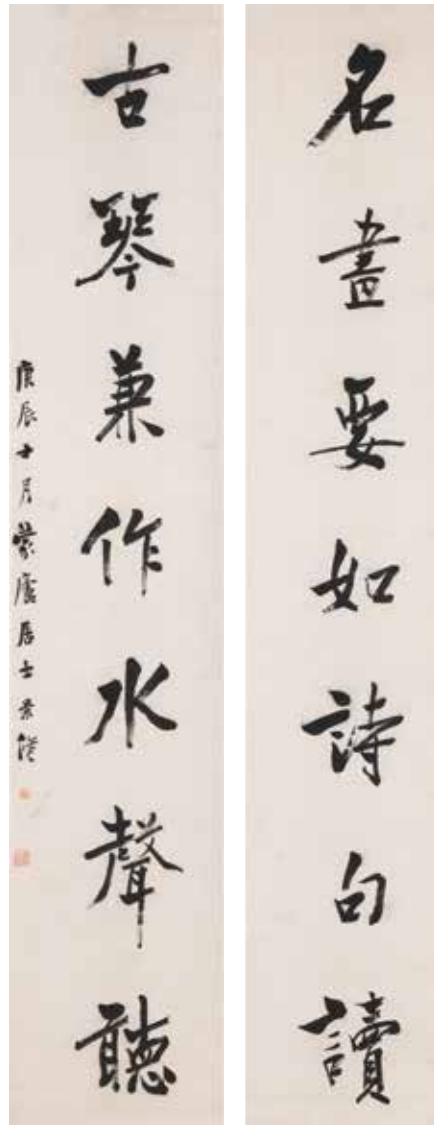 名畫要如詩句讀
古琴兼作水聲聽
庚辰十月蒙廬居士景僖